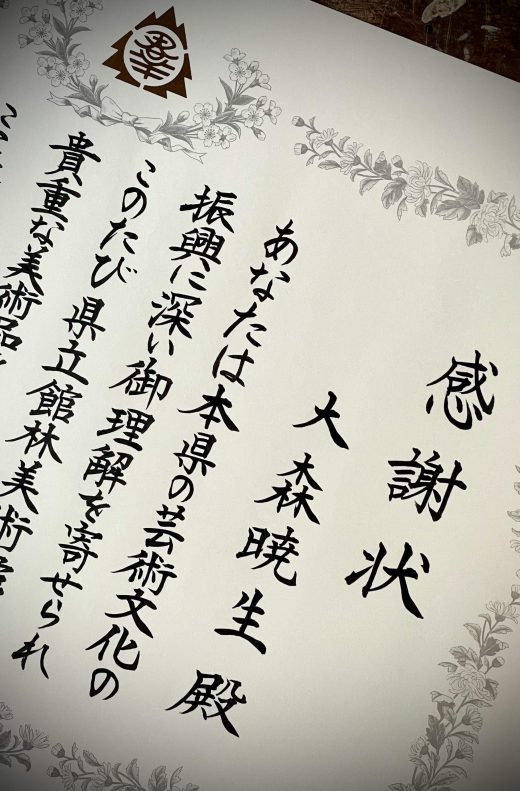 感謝状
大森暁生殿
あなたは本県の芸術文化の
振興に深い御理解を寄せられ
このたび県立館林美術館
貴重な美術品を